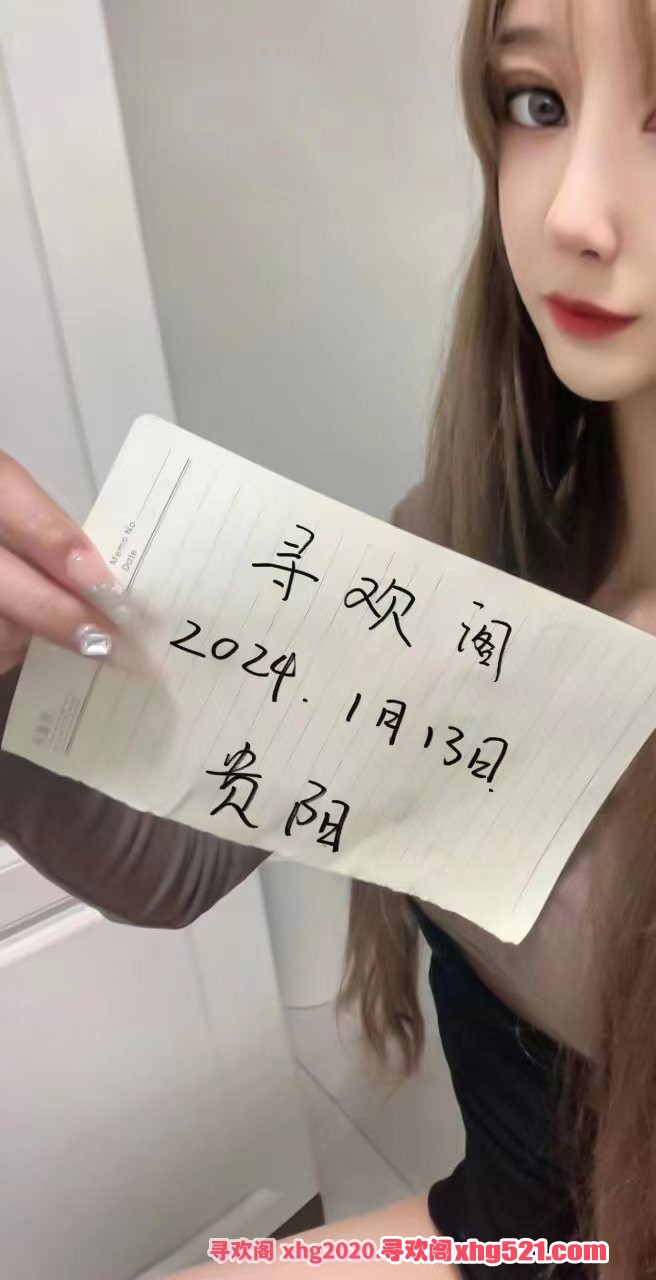 Memo No
Date
寻欢阁
2024.1月13日
贵阳
寻欢阁 xhg2020.寻欢阁xhg521.com